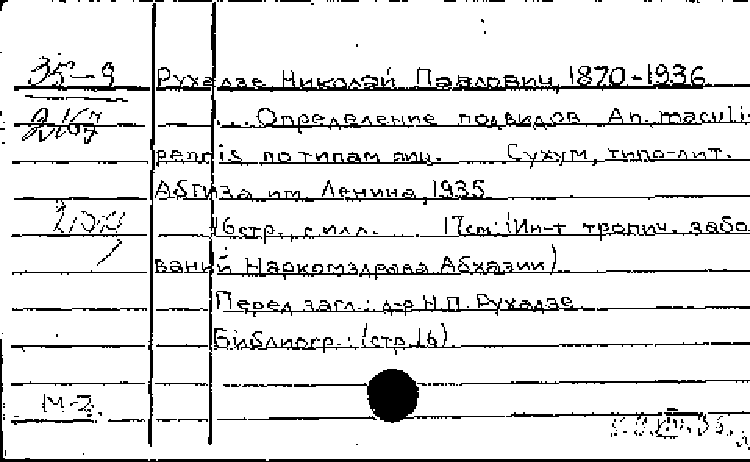 35-9
Рухадзе, Николай Павлович, 1870-1936
2167
... Определение подвидов An. maculi-
pennis по типам яиц. Сухум, типо-лит.
Абгиза им. Ленина, 1935
16 стр., с илл. 17см. (Ин-т тропич. забо
ваний Наркомздрава Абхазии)
Перед загл.: д-р Н.П. Рухадзе
Библиогр.: (стр. 16)
М-2.